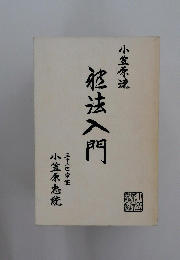 小笠原流
礼法入門
三十二世宗家
小笠原忠統